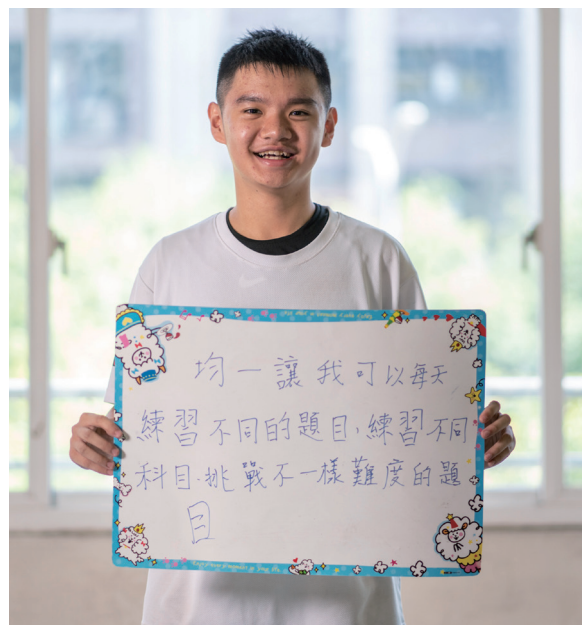 均一讓我可以每天
練習不同的題目,練習不同
科目.挑戰不一樣難度的題
目